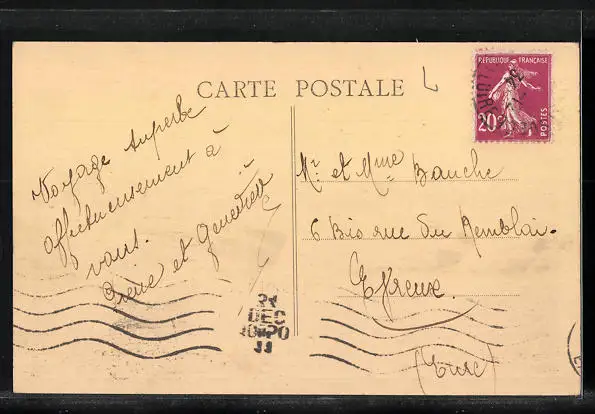 CARTE POSTALE
REPUBLIQUE FRANÇAISE
20c
POSTES
Voyage superbe
affectueusement à
vous.
et Geneviève
Mr et Mme Bauche
6 Bis rue du Remblai.
Evreux.
(Eure)